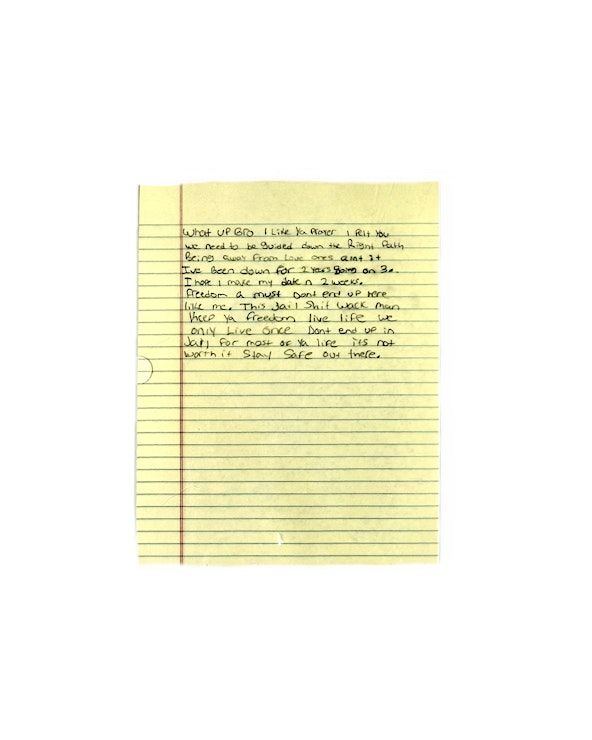 What UP Bro I Like Ya Prayer I Felt You
we need to be guided down the Right Path
Being away From Love ones aint it
Ive Been down for 2 years going on 3.
I hope I make my date n 2 weeks.
Freedom a must Dont end up here
like me. This Jail Shit wack man
Keep Ya freedom live life we
only Live once Dont end up in
Jail for most of Ya life its not
worth it Stay Safe out there.